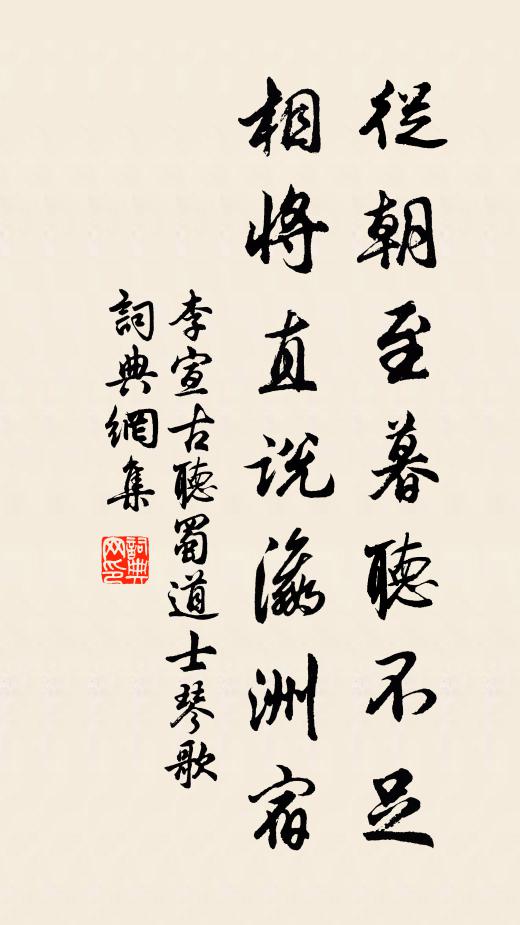 從朝至暮聽不足
相將直説瀛洲宿
李宣古聽蜀道士琴歌
詞典網集
詞典网印